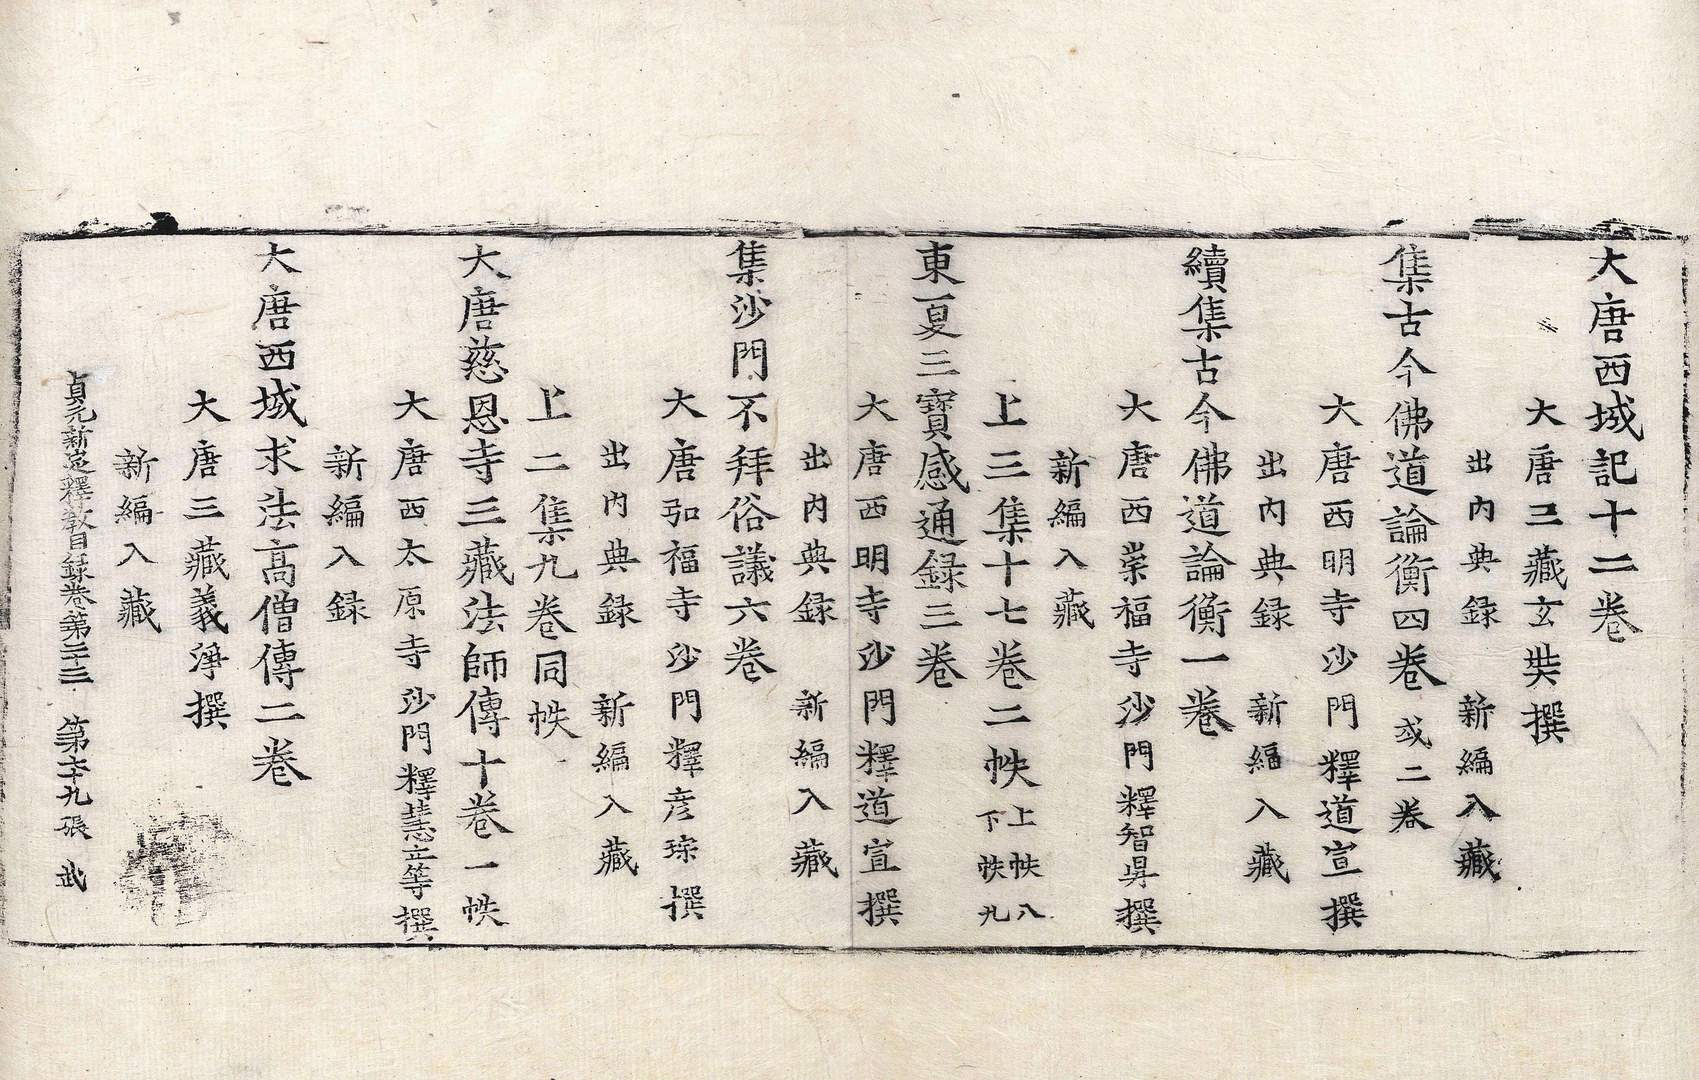 大唐西域記十二卷
大唐三藏玄奘撰
出內典録 新編入藏
集古今佛道論衡四卷 或二卷
大唐西明寺沙門釋道宣撰
出內典録 新編入藏
續集古今佛道論衡一卷
大唐西崇福寺沙門釋智昇撰
新編入藏
上三集十七卷二帙 上帙八 下帙九
東夏三寶感通録三卷
大唐西明寺沙門釋道宣撰
出內典録 新編入藏
集沙門不拜俗議六卷
大唐弘福寺沙門釋彦琮撰
出內典録 新編入藏
上二集九卷同帙
大唐慈恩寺三藏法師傳十卷一帙
大唐西太原寺沙門釋慧立等撰
新編入録
大唐西域求法高僧傳二卷
大唐三藏義淨撰
新編入藏
貞元新定釋教目録卷第二十三 第六十九張 武